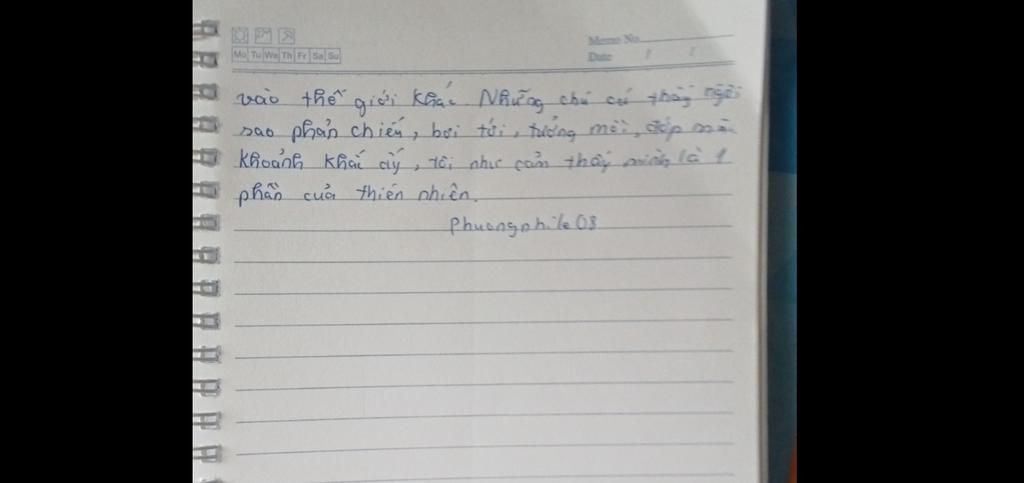 Memo No.
Date / /
Mo Tu We Th Fr Sa Su
vào thế giới khác. Những chú cá thấy ngôi
sao phản chiếu, bơi tới, tưởng mồi, đớp mà
khoảnh khắc ấy, tôi như cảm thấy mình là 1
phần của thiên nhiên.
Phuongphile03